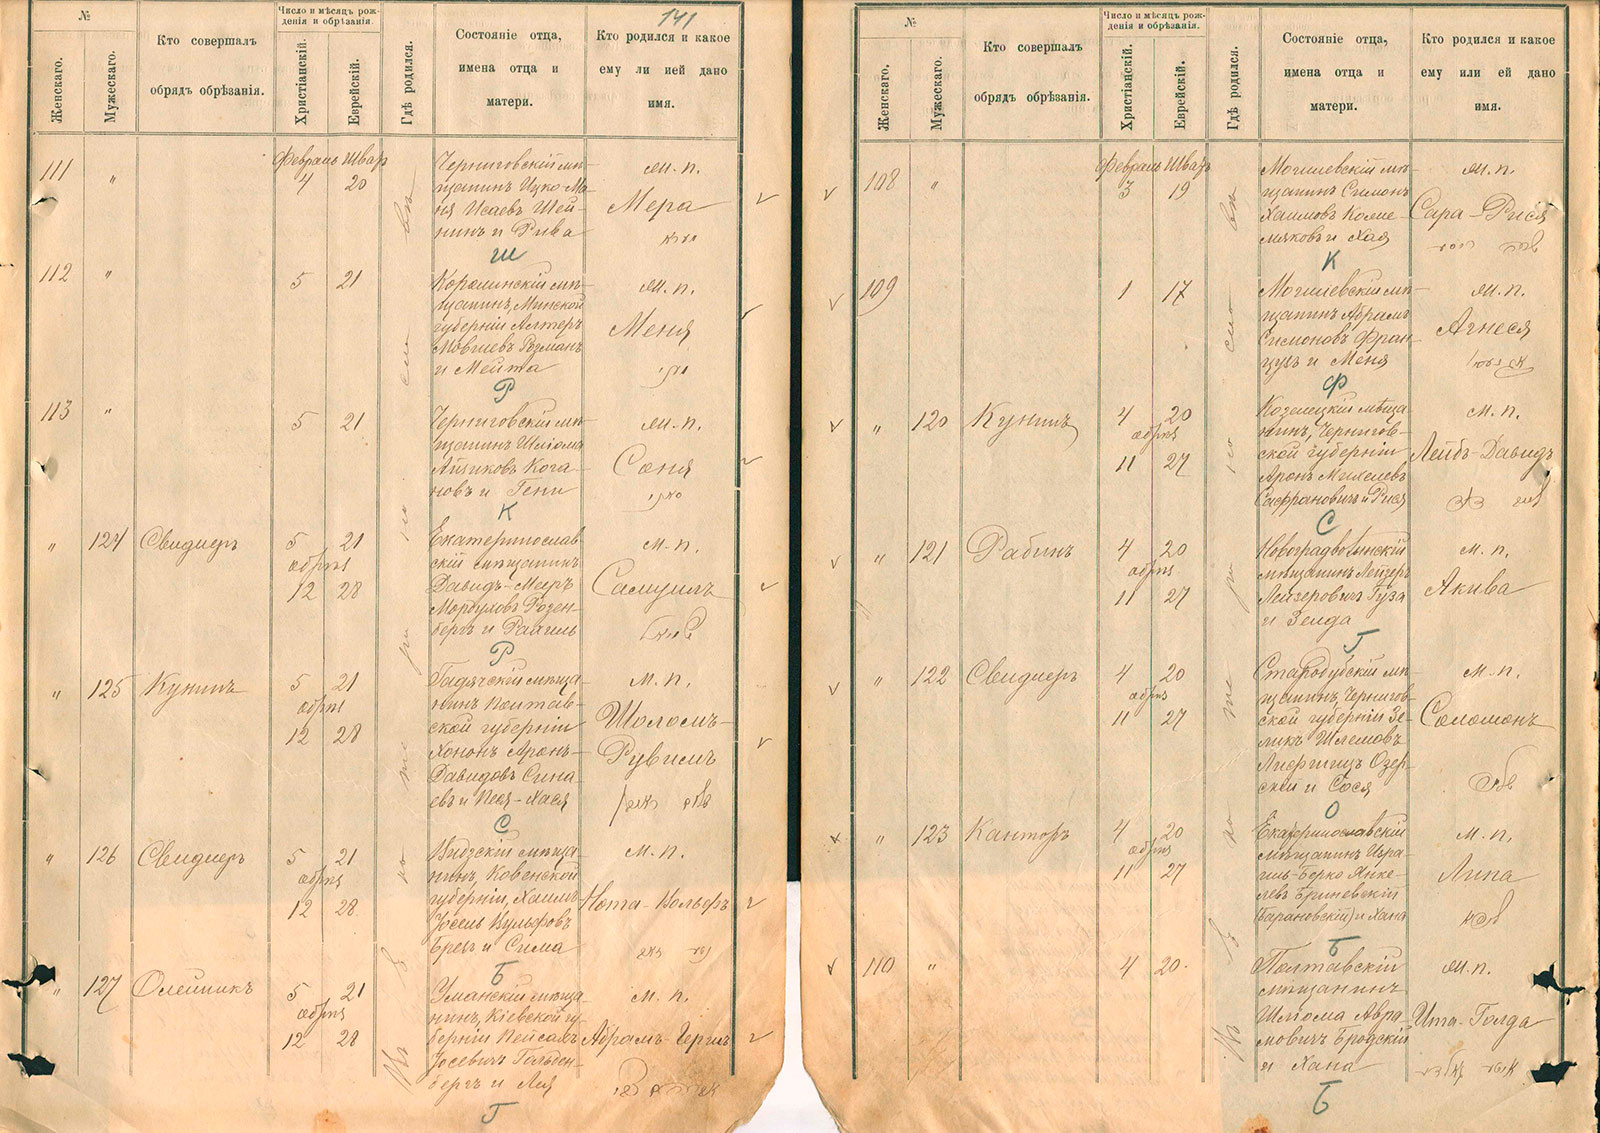 141
№
Женскаго.
Мужескаго.
Кто совершалъ
обрядъ обрѣзанія.
Число и мѣсяцъ рож-
денія и обрѣзанія.
Христіанскій.
Еврейскій.
Гдѣ родился.
Состояніе отца,
имена отца и
матери.
Кто родился и какое
ему ли ией дано
имя.
111 „
Февраль Шватъ
4 20
Черниговскій мѣ-
щанинъ Ицко-Ма-
ня Исаевъ Шей-
нинъ и Рива
Ш
м. п.
Мера
112 „
5 21
Корелинскій мѣ-
щанинъ, Минской
губерніи Алтеръ
Мовшевъ Розманъ
и Мейта
Р
м. п.
Меня
113 „
5 21
Черниговскій мѣ-
щанинъ Шлiома
Айзиковъ Кога-
новъ и Гени
К
м. п.
Соня
„ 124 Свидлеръ
5 21
обрѣз
12 28
Екатеринослав-
скій мѣщанинъ
Давидъ-Мееръ
Мордуховъ Розен-
бергъ и Рахиль
Р
м. п.
Самуилъ
„ 125 Кунинъ
5 21
обрѣз
12 28
Гадячскій мѣща-
нинъ Полтав-
ской губерніи
Хононъ Аронъ-
Давидовъ Сина-
евъ и Песя-Хася
С
м. п.
Шоломъ-
Рувимъ
„ 126 Свидлеръ
5 21
обрѣз
12 28
Видзскій мѣща-
нинъ, Ковенской
губерніи, Хаимъ
Іосель Вульфовъ
Брецъ и Сима
Б
м. п.
Нота-Вольфъ
„ 127 Олейникъ
5 21
обрѣз
12 28
Уманскій мѣща-
нинъ, Кіевской гу-
берніи Пейсахъ
Іосевичъ Гольден-
бергъ и Лея
Г
м. п.
Абрамъ-Гершъ
Въ
№
Женскаго.
Мужескаго.
Кто совершалъ
обрядъ обрѣзанія.
Число и мѣсяцъ рож-
денія и обрѣзанія.
Христіанскій.
Еврейскій.
Гдѣ родился.
Состояніе отца,
имена отца и
матери.
Кто родился и какое
ему или ей дано
имя.
108 „
Февраль Шватъ
3 19
Могилевскій мѣ-
щанинъ Симонъ
Хаимовъ Колме-
мяковъ и Хая
К
м. п.
Сара-Рися
109
1 17
Могилевскій мѣ-
щанинъ Абрамъ
Симоновъ Фран-
цузъ и Меня
Ф
м. п.
Агнеся
„ 120 Кунинъ
4 20
обрѣз
11 27
Козелецкій мѣща-
нинъ, Чернигов-
ской губерніи
Аронъ Михелевъ
Сафрановичъ и Рися
С
м. п.
Лейбъ-Давидъ
„ 121 Рабинъ
4 20
обрѣз
11 27
Новоградволынскій
мѣщанинъ Лейзеръ
Лейзеровичъ Гуза
и Зелда
Г
м. п.
Акива
„ 122 Свидлеръ
4 20
обрѣз
11 27
Стародубскій мѣ-
щанинъ, Чернигов-
ской губерніи Зе-
ликъ Шлемовъ
Озер-
скій и Сося
О
м. п.
Соломонъ
„ 123 Канторъ
4 20
обрѣз
11 27
Екатеринославскій
мѣщанинъ Изра-
иль-Берко Янке-
левъ Бриневскій
(Барановскій) и Хана
Б
м. п.
Липа
110 „
4 20.
Полтавскій
мѣщанинъ
Шлiома Авра-
мовичъ Бродскій
и Хана
Б
м. п.
Ита-Голда
Въ